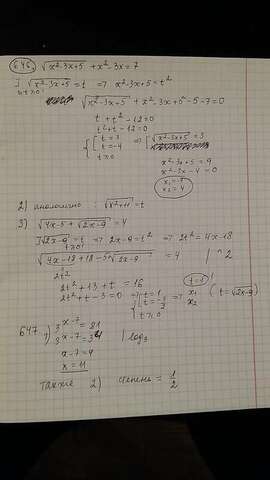 646) √x²-3x+5 + x²-3x=7
] √x²-3x+5 = t => x²-3x+5=t²
t≥0
√x²-3x+5 + x²-3x+5-5-7=0
t + t²-12=0
t²+t-12=0
t=3 => √x²-3x+5 = 3
t=-4
t≥0
x²-3x+5=9
x²-3x-4=0
x₂=4
2) аналогично : √x²+11 = t
3) √4x-5+√2x-9 = 4
] √2x-9 = t => 2x-9=t² => 2t²=4x-18
t≥0
√4x-18+18-5+√2x-9 = 4 | ^2
2t²
2t²+13+t=16
2t²+t-3=0 => t=1
t=-3/2
t≥0
=> t=1
x₁
x₂
(t=√2x-9)
647 1) 3ˣ⁻⁷=81
3ˣ⁻⁷=3⁴ | log₃
x-7=4
x=11
Также 2) степень = 1/2